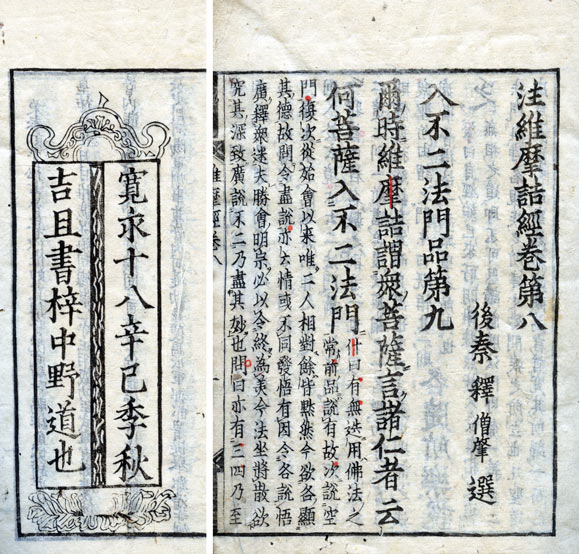 注維摩詰經卷第八
後秦 釋僧肇 選
入不二法門品第九
爾時維摩詰謂衆菩薩言諸仁者云
何菩薩入不二法門
什曰有無迭用佛法之
常前品說有故次說空
門復次從始會以來唯二人相對餘皆黙然今欲各顯
其德故問令盡說亦云情惑不同發悟有因令各說悟
廣釋衆迷夫勝會明宗必以令終為美今法坐將散欲
究其深致廣說不二乃盡其妙也問曰亦有三四乃至
維摩經卷八
寛永十八辛巳季秋
吉且書梓中野道也